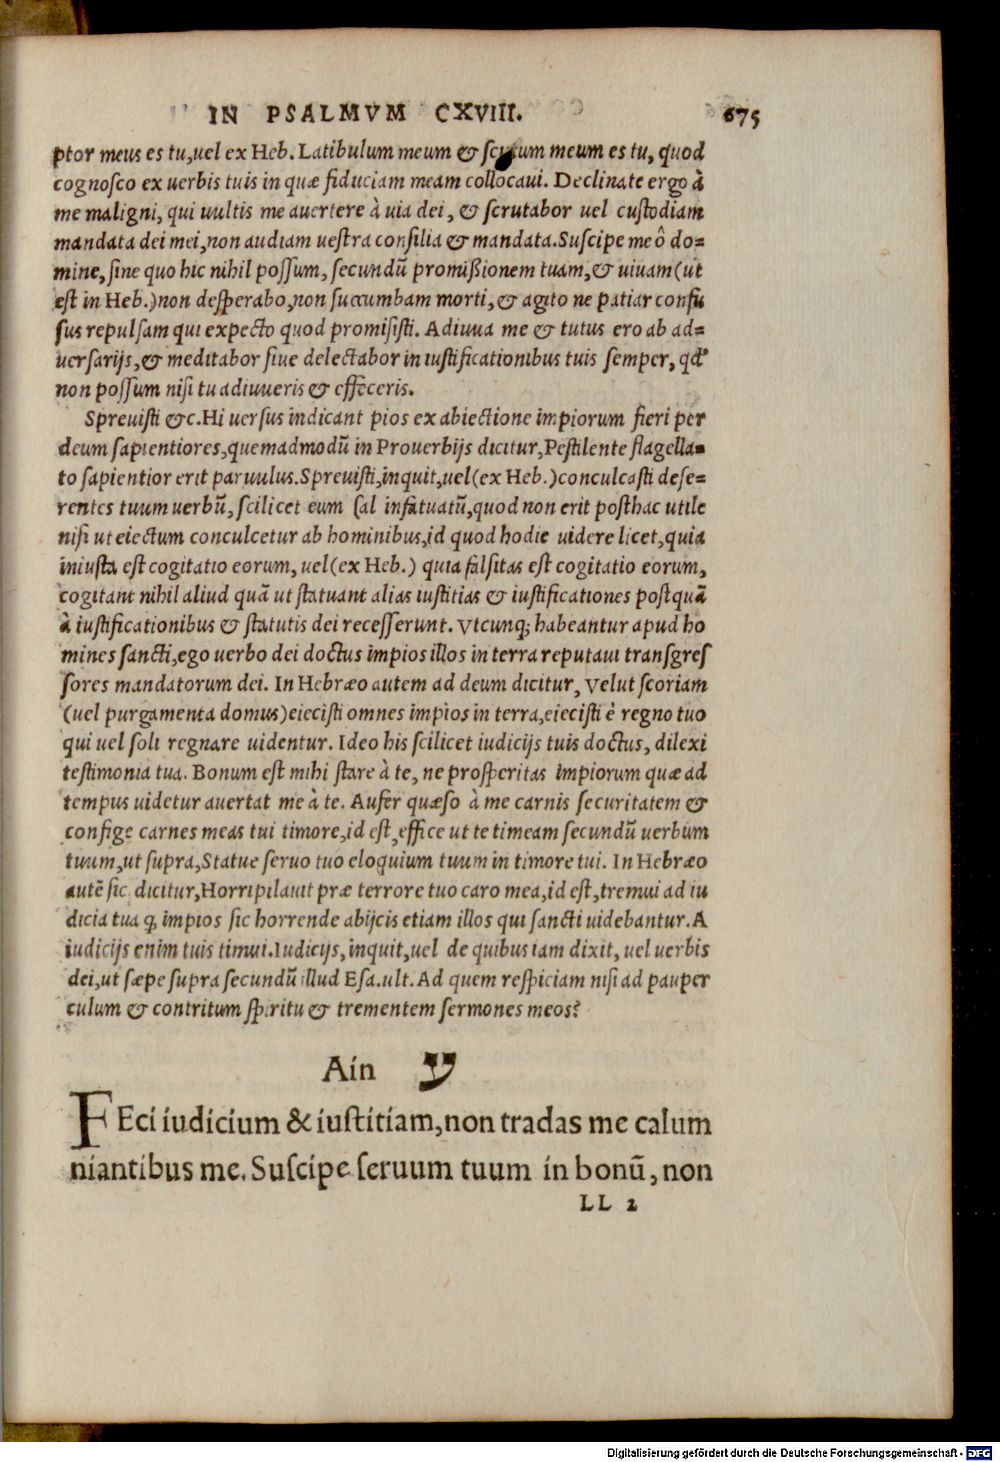 IN PSALMVM CXVIII. 675
ptor meus es tu, uel ex Heb. Latibulum meum & scutum meum es tu, quod
cognosco ex uerbis tuis in quæ fiduciam meam collocaui. Declinate ergo à
me maligni, qui uultis me auertere à uia dei, & scrutabor uel custodiam
mandata dei mei, non audiam uestra consilia & mandata. Suscipe me ô do=
mine, sine quo hic nihil possum, secundũ promißionem tuam, & uiuam (ut
est in Heb.) non desperabo, non succumbam morti, & agito ne patiar confu
sus repulsam qui expecto quod promisisti. Adiuua me & tutus ero ab ad=
uersarijs, & meditabor siue delectabor in iustificationibus tuis semper, qđ
non possum nisi tu adiuueris & effeceris.
Spreuisti &c. Hi uersus indicant pios ex abiectione impiorum fieri per
deum sapientiores, quemadmodũ in Prouerbijs dicitur, Pestilente flagella=
to sapientior erit paruulus. Spreuisti, inquit, uel (ex Heb.) conculcasti dese=
rentes tuum uerbũ, scilicet eum sal infatuatũ, quod non erit posthac utile
nisi ut eiectum conculcetur ab hominibus, id quod hodie uidere licet, quia
iniusta est cogitatio eorum, uel (ex Heb.) quia falsitas est cogitatio eorum,
cogitant nihil aliud quã ut statuant alias iustitias & iustificationes postquã
à iustificationibus & statutis dei recesserunt. Vtcunq; habeantur apud ho
mines sancti, ego uerbo dei doctus impios illos in terra reputaui transgres
sores mandatorum dei. In Hebræo autem ad deum dicitur, Velut scoriam
(uel purgamenta domus) eiecisti omnes impios in terra, eiecisti è regno tuo
qui uel soli regnare uidentur. Ideo his scilicet iudicijs tuis doctus, dilexi
testimonia tua. Bonum est mihi stare à te, ne prosperitas impiorum quæ ad
tempus uidetur auertat me à te. Aufer quæso à me carnis securitatem &
confige carnes meas tui timore, id est, effice ut te timeam secundũ uerbum
tuum, ut supra, Statue seruo tuo eloquium tuum in timore tui. In Hebræo
autẽ sic dicitur, Horripilauit præ terrore tuo caro mea, id est, tremui ad iu
dicia tua q̃ impios sic horrende abijcis etiam illos qui sancti uidebantur. A
iudicijs enim tuis timui. Iudicijs, inquit, uel de quibus iam dixit, uel uerbis
dei, ut sæpe supra secundũ illud Esa. ult. Ad quem respiciam nisi ad pauper
culum & contritum spiritu & trementem sermones meos?
Ain ע
FEci iudicium & iustitiam, non tradas me calum
niantibus me. Suscipe seruum tuum in bonũ, non
LL 2
Digitalisierung gefördert durch die Deutsche Forschungsgemeinschaft - DFG